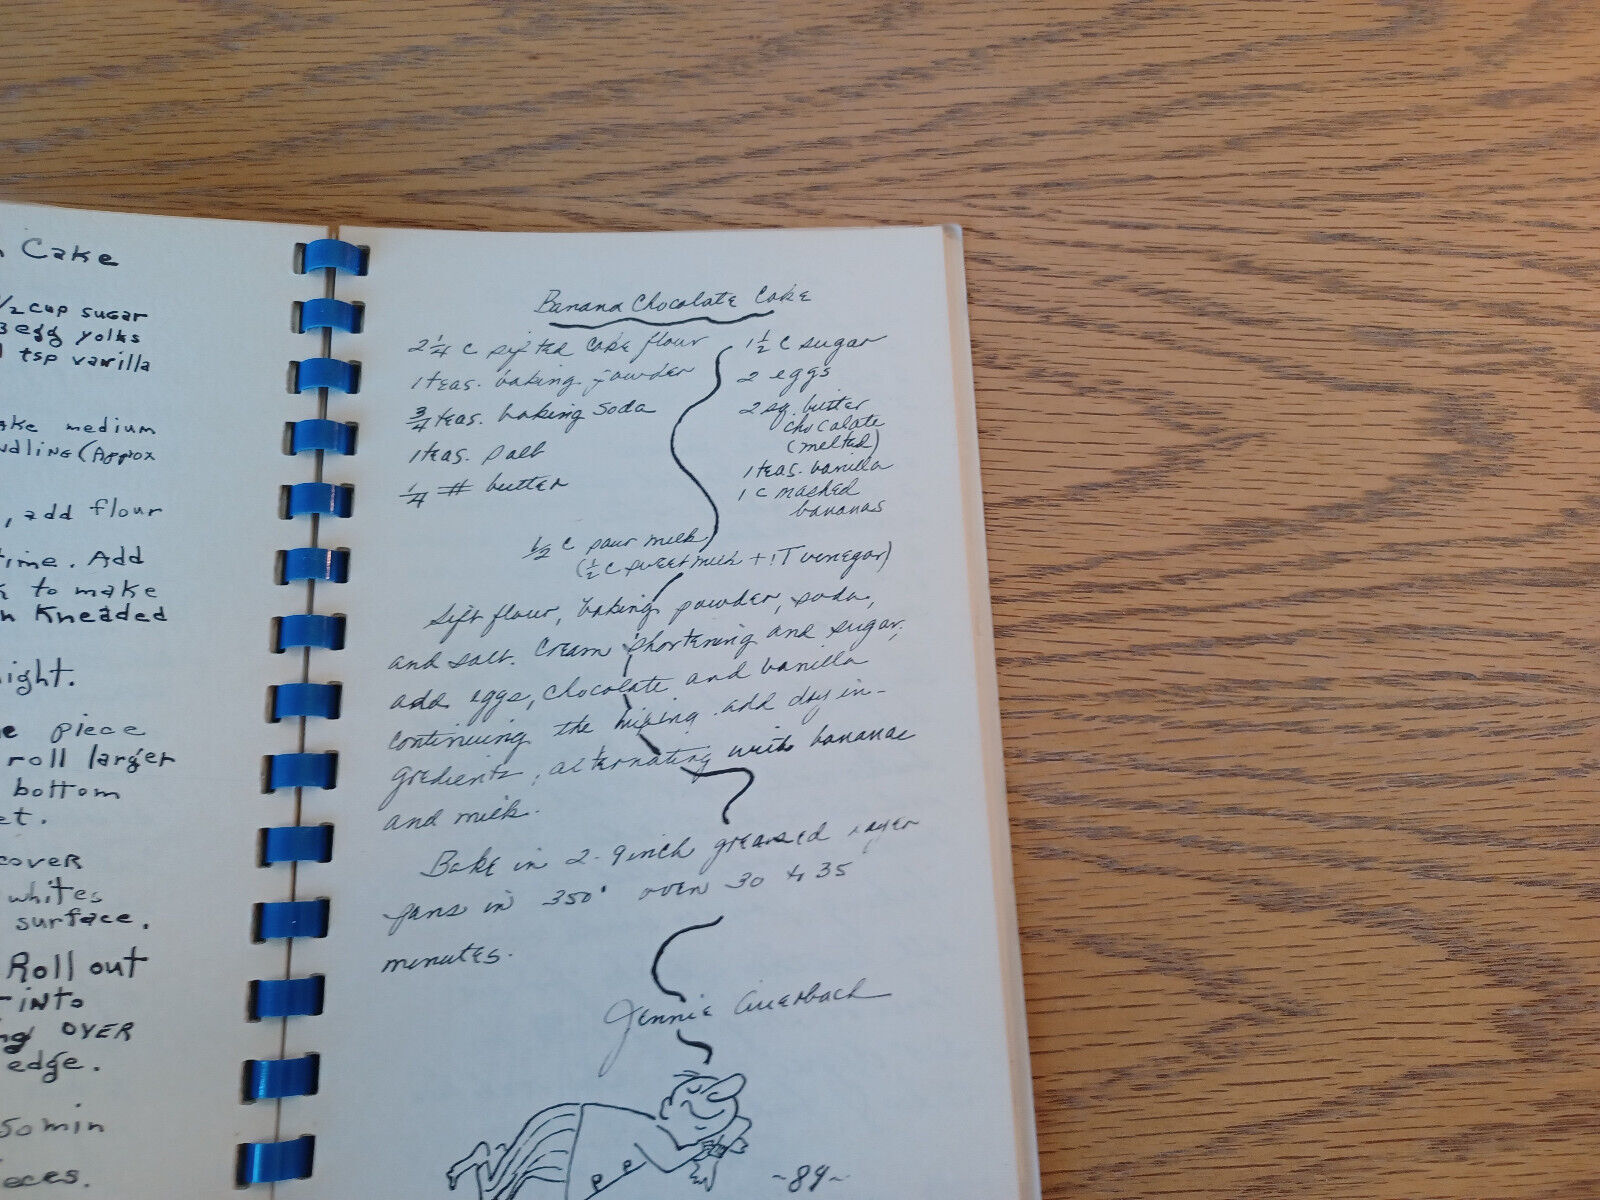 Cake
1/2 cup sugar
3 egg yolks
1 tsp vanilla
medium
(Approx
, add flour
time. Add
to make
Kneaded
piece
roll larger
bottom
cover
whites
surface.
Roll out
into
OVER
edge.
50 min
Banana Chocolate Cake
2 1/4 c sifted cake flour
1 teas. baking powder
3/4 teas. baking soda
1 teas. salt
1/4 # butter
1 1/2 c sugar
2 eggs
2 sq. bitter
chocolate
(melted)
1 teas. vanilla
1 c mashed
bananas
1/2 c sour milk
(1/2 c sweet milk + 1 T vinegar)
Sift flour, baking powder, soda,
and salt. Cream shortening and sugar,
add eggs, chocolate and vanilla
continuing the mixing. add dry in-
gredients, alternating with bananas
and milk.
Bake in 2-9 inch greased layer
pans in 350° oven 30 to 35
minutes.
Jennie Auerbach
-89-